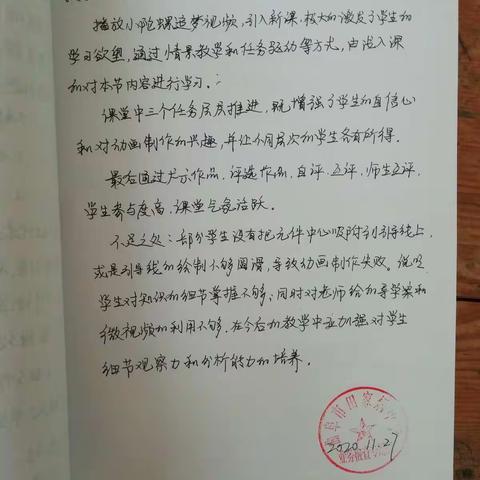 播放小陀螺追梦视频,引入新课,极大的激发了学生的
学习欲望,通过情景教学和任务驱动等方式,由浅入深
的对本节内容进行学习.
课堂中三个任务层层推进,既增强了学生的自信心
和对动画制作的兴趣,并让不同层次的学生各有所得.
最后通过展示作品,评选作品,自评,互评,师生互评,
学生参与度高,课堂气氛活跃.
不足之处:部分学生没有把元件中心吸附到引导线上,
或是引导线的绘制不够圆滑,导致动画制作失败。说明
学生对知识的细节掌握不够,同时对老师给的导学案和
微视频的利用不够.在今后的教学中应加强对学生
细节观察力和分析能力的培养.
2020.11.27